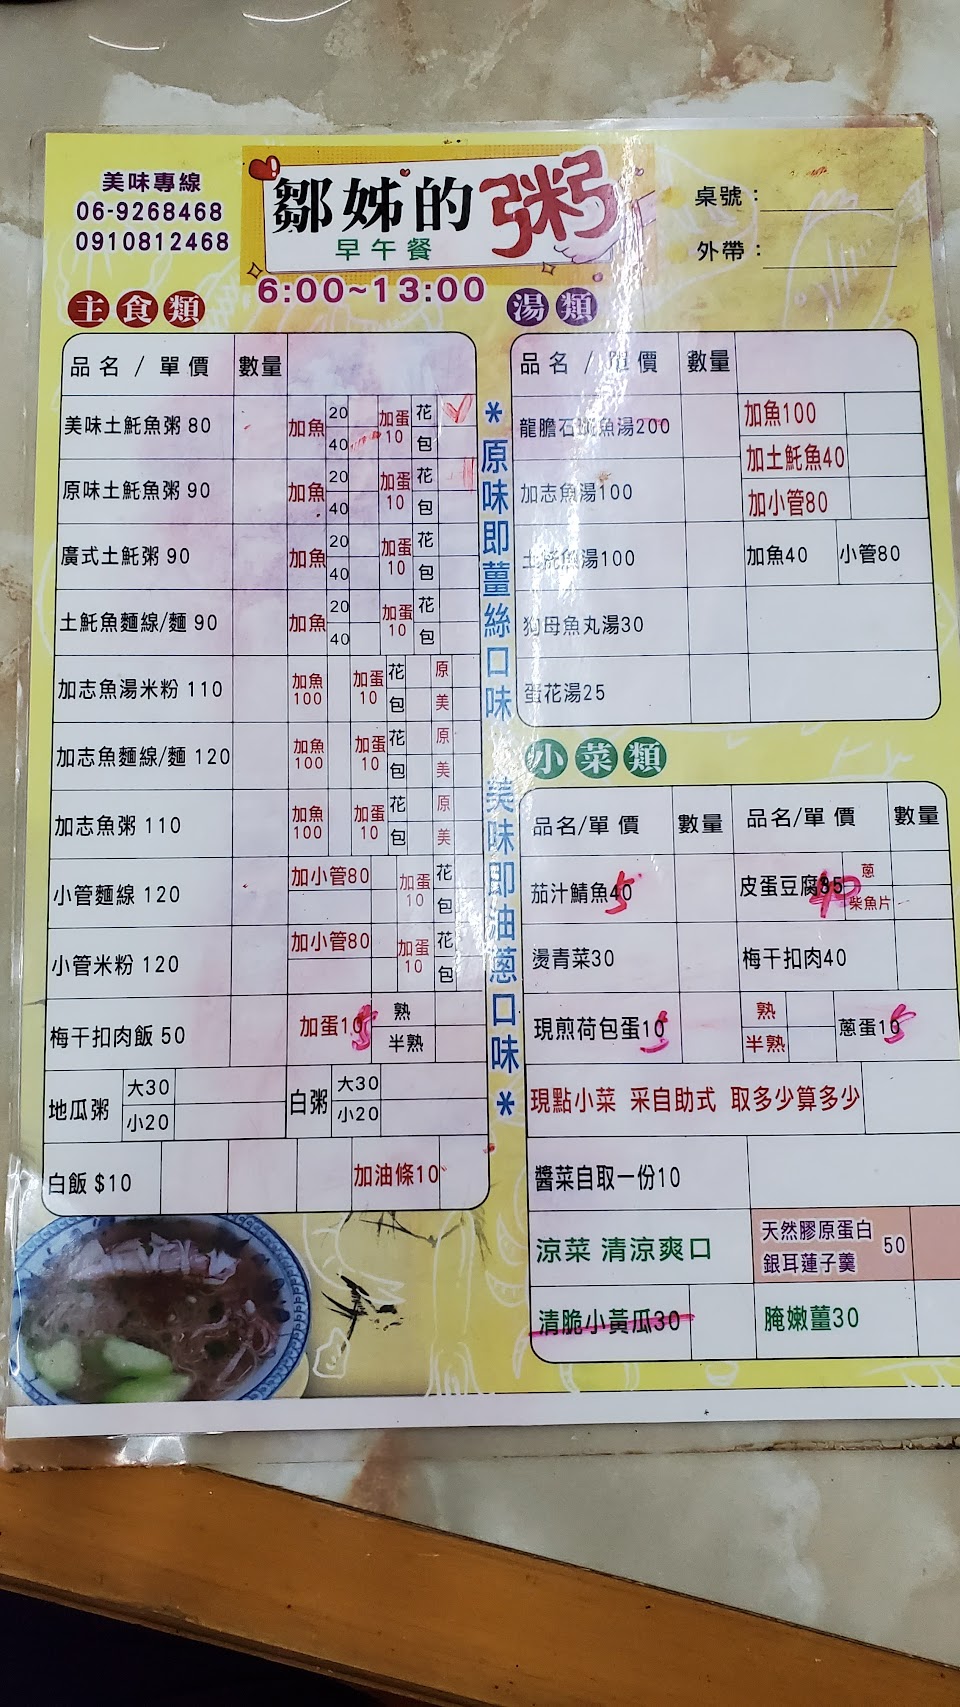 美味專線
06-9268468
0910812468
鄒姊的粥
早午餐
6:00~13:00
桌號：
外帶：
主食類
品名 / 單價 數量
美味土魠魚粥 80 加魚 20 40 加蛋10 花 包
原味土魠魚粥 90 加魚 20 40 加蛋10 花 包
廣式土魠粥 90 加魚 20 40 加蛋10 花 包
土魠魚麵線/麵 90 加魚 20 40 加蛋10 花 包
加志魚湯米粉 110 加魚100 加蛋10 花 包 原 美
加志魚麵線/麵 120 加魚100 加蛋10 花 包 原 美
加志魚粥 110 加魚100 加蛋10 花 包 原 美
小管麵線 120 加小管80 加蛋10 花 包
小管米粉 120 加小管80 加蛋10 花 包
梅干扣肉飯 50 加蛋10 5 熟 半熟
地瓜粥 大30 小20 白粥 大30 小20
白飯 $10 加油條10
＊原味即薑絲口味 美味即油蔥口味＊
湯類
品名 / 單價 數量
龍膽石斑魚湯200 加魚100
加土魠魚40
加志魚湯100 加小管80
土魠魚湯100 加魚40 小管80
狗母魚丸湯30
蛋花湯25
小菜類
品名/單價 數量 品名/單價 數量
茄汁鯖魚40 5 皮蛋豆腐35 40 蔥 柴魚片
燙青菜30 梅干扣肉40
現煎荷包蛋10 5 熟 半熟 蔥蛋10 5
現點小菜 采自助式 取多少算多少
醬菜自取一份10
涼菜 清涼爽口 天然膠原蛋白
銀耳蓮子羹 50
清脆小黃瓜30 腌嫩薑30